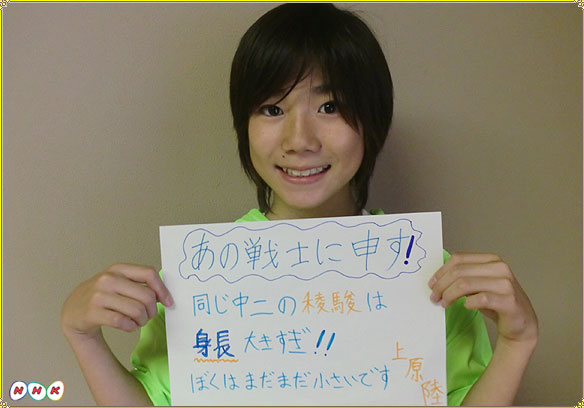 あの戦士に申す!
同じ中二の稜駿は
身長大きすぎ!!
ぼくはまだまだ小さいです
上原陸
NHK